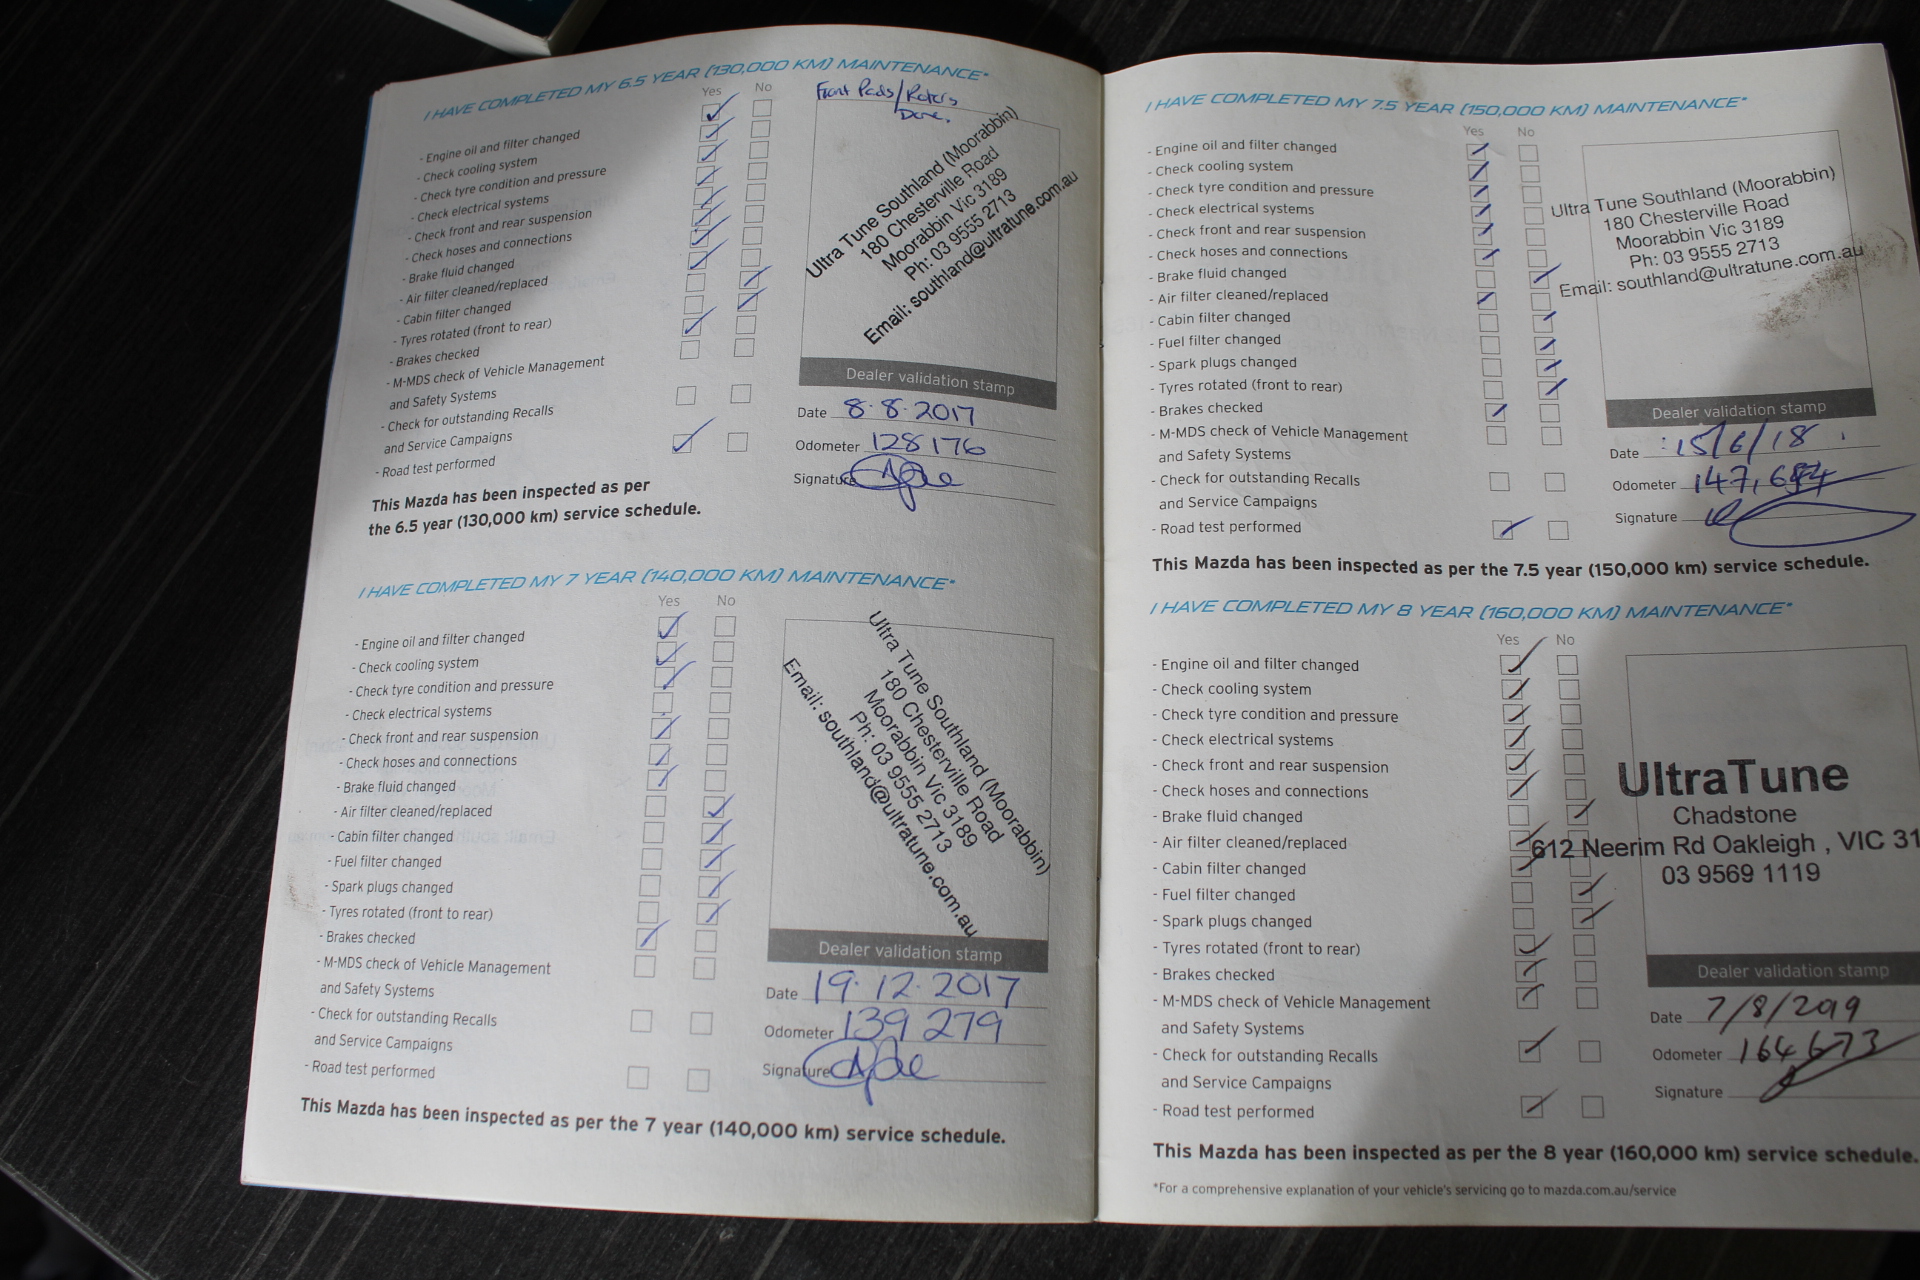 I HAVE COMPLETED MY 6.5 YEAR (130,000 KM) MAINTENANCE*
Yes No
- Engine oil and filter changed
- Check cooling system
- Check tyre condition and pressure
- Check electrical systems
- Check front and rear suspension
- Check hoses and connections
- Brake fluid changed
- Air filter cleaned/replaced
- Cabin filter changed
- Tyres rotated (front to rear)
- Brakes checked
- M-MDS check of Vehicle Management
and Safety Systems
- Check for outstanding Recalls
and Service Campaigns
- Road test performed
This Mazda has been inspected as per
the 6.5 year (130,000 km) service schedule.
Front Pads/Rotors
Done.
Ultra Tune Southland (Moorabbin)
180 Chesterville Road
Moorabbin Vic 3189
Ph: 03 9555 2713
Email: southland@ultratune.com.au
Dealer validation stamp
Date 8.8.2017
Odometer 128176
Signature
I HAVE COMPLETED MY 7 YEAR (140,000 KM) MAINTENANCE*
Yes No
- Engine oil and filter changed
- Check cooling system
- Check tyre condition and pressure
- Check electrical systems
- Check front and rear suspension
- Check hoses and connections
- Brake fluid changed
- Air filter cleaned/replaced
- Cabin filter changed
- Fuel filter changed
- Spark plugs changed
- Tyres rotated (front to rear)
- Brakes checked
- M-MDS check of Vehicle Management
and Safety Systems
- Check for outstanding Recalls
and Service Campaigns
- Road test performed
This Mazda has been inspected as per the 7 year (140,000 km) service schedule.
Ultra Tune Southland (Moorabbin)
180 Chesterville Road
Moorabbin Vic 3189
Ph: 03 9555 2713
Email: southland@ultratune.com.au
Dealer validation stamp
Date 19.12.2017
Odometer 139279
Signature
I HAVE COMPLETED MY 7.5 YEAR (150,000 KM) MAINTENANCE*
Yes No
- Engine oil and filter changed
- Check cooling system
- Check tyre condition and pressure
- Check electrical systems
- Check front and rear suspension
- Check hoses and connections
- Brake fluid changed
- Air filter cleaned/replaced
- Cabin filter changed
- Fuel filter changed
- Spark plugs changed
- Tyres rotated (front to rear)
- Brakes checked
- M-MDS check of Vehicle Management
and Safety Systems
- Check for outstanding Recalls
and Service Campaigns
- Road test performed
This Mazda has been inspected as per the 7.5 year (150,000 km) service schedule.
Ultra Tune Southland (Moorabbin)
180 Chesterville Road
Moorabbin Vic 3189
Ph: 03 9555 2713
Email: southland@ultratune.com.au
Dealer validation stamp
Date 15/6/18
Odometer
Signature
I HAVE COMPLETED MY 8 YEAR (160,000 KM) MAINTENANCE*
Yes No
- Engine oil and filter changed
- Check cooling system
- Check tyre condition and pressure
- Check electrical systems
- Check front and rear suspension
- Check hoses and connections
- Brake fluid changed
- Air filter cleaned/replaced
- Cabin filter changed
- Fuel filter changed
- Spark plugs changed
- Tyres rotated (front to rear)
- Brakes checked
- M-MDS check of Vehicle Management
and Safety Systems
- Check for outstanding Recalls
and Service Campaigns
- Road test performed
This Mazda has been inspected as per the 8 year (160,000 km) service schedule.
*For a comprehensive explanation of your vehicle's servicing go to mazda.com.au/service
UltraTune
Chadstone
612 Neerim Rd Oakleigh , VIC 31
03 9569 1119
Dealer validation stamp
Date 7/8/2019
Odometer 164673
Signature